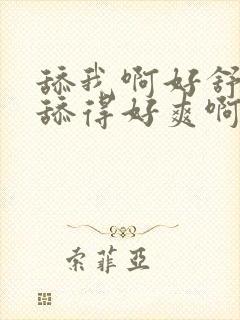 舔我啊好舒
舔得好爽啊
索菲亞